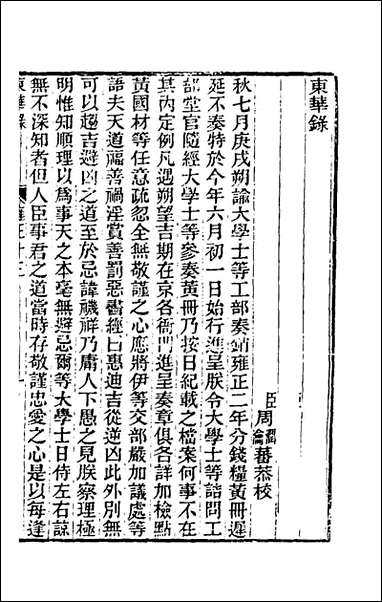 東華錄
臣周潤蕃恭校
秋七月庚戌朔諭大學士等工部奏銷雍正二年分錢糧黃冊遲
延不奏特於今年六月初一日始行進呈朕令大學士等詰問工
部堂官隨經大學士等參奏黃冊乃按日紀載之檔案何事不在
其內定例凡遇朔望吉期在京各衙門進呈奏章俱各詳加檢點
黃國材等任意疏忽全無敬謹之心應將伊等交部嚴加議處等
語夫天道福善禍淫賞善罰惡書經曰惠迪吉從逆凶此外別無
可以趨吉避凶之道至於忌諱禨祥乃庸人下愚之見朕察理極
明惟知順理以為事天之本毫無避忌爾等大學士日侍左右諒
無不深知者但人臣事君之道當時存敬謹忠愛之心是以每逢
東華錄